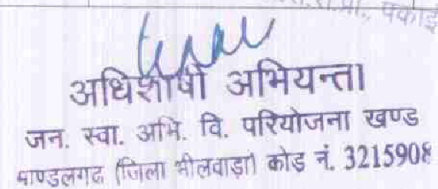 अधिशाषी अभियन्ता
जन. स्वा. अभि. वि. परियोजना खण्ड
माण्डलगढ (जिला भीलवाड़ा) कोड नं. 3215908